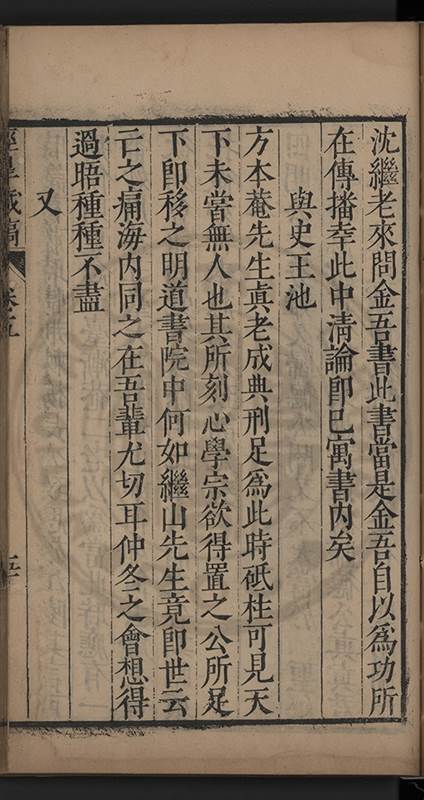 沈繼老來問金吾書此書當是金吾自以爲功所
在傳播幸此中淸論卽已寓書內矣
與史王池
方本菴先生眞老成典刑足爲此時砥柱可見天
下未甞無人也其所刻心學宗欲得置之公所足
下卽移之明道書院中何如繼山先生竟卽世云
亡之痛海內同之在吾輩尤切耳仲冬之會想得
過晤種種不盡
又
涇皐藏稿
卷五